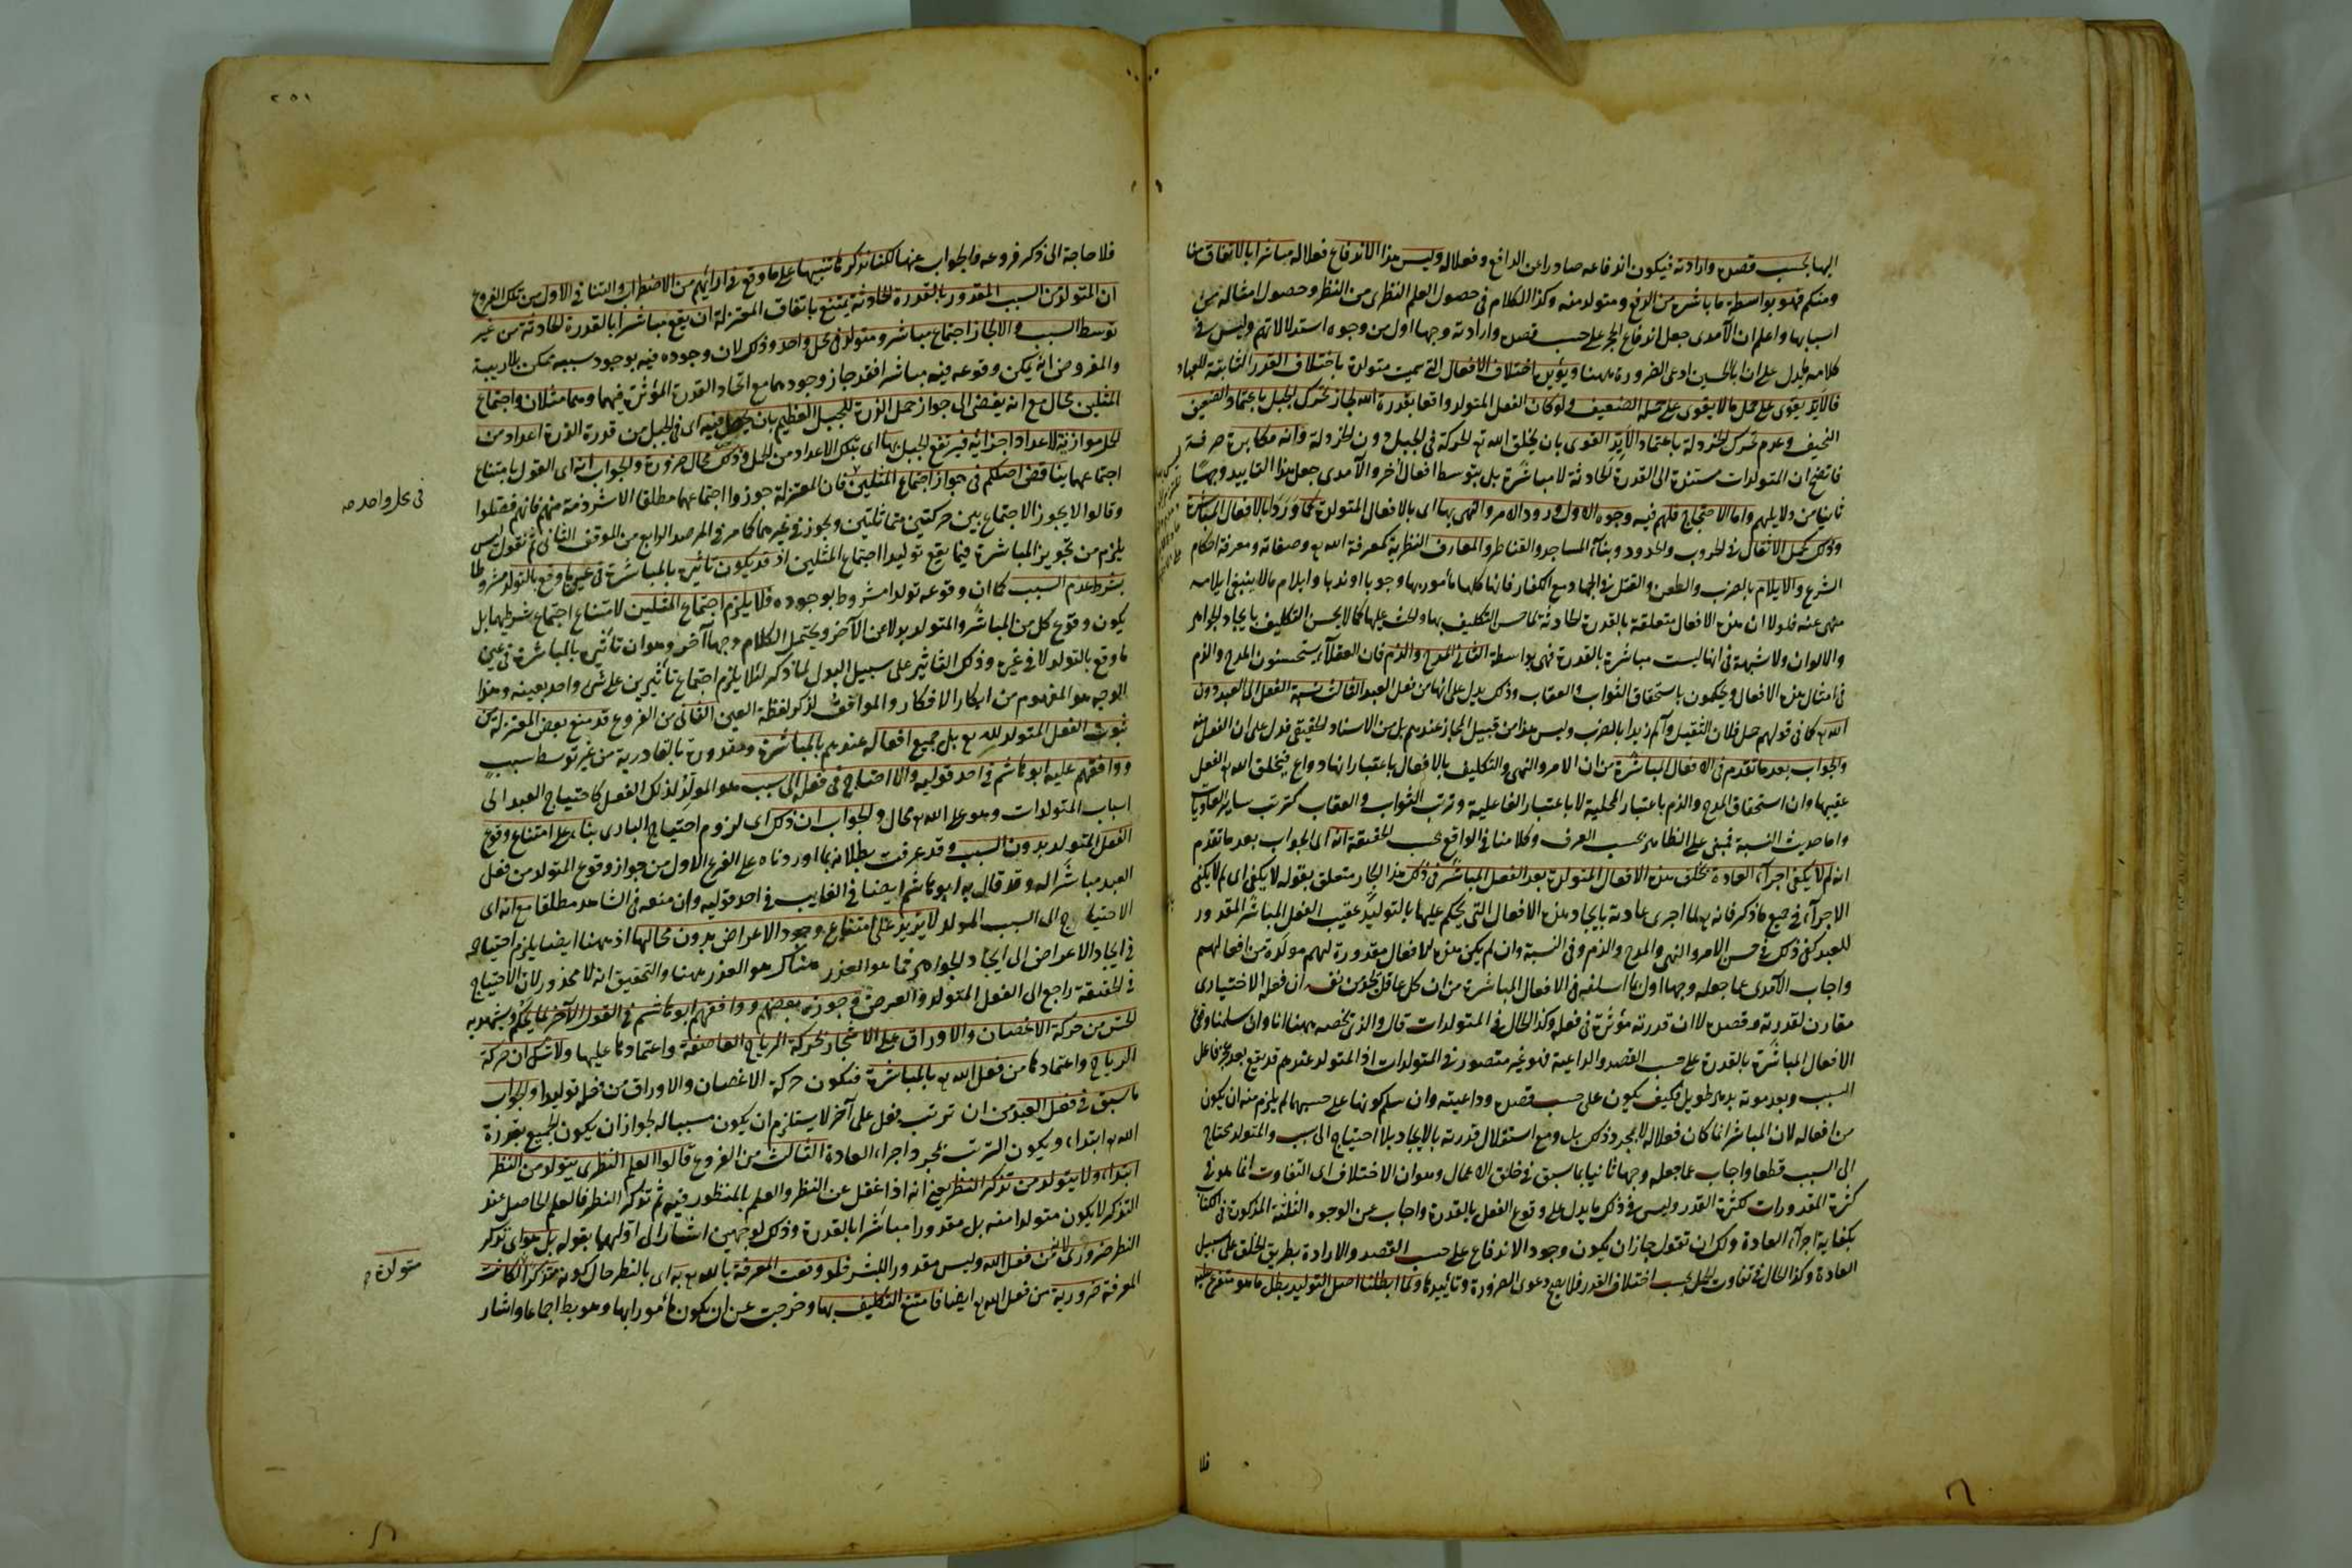 اليها بحسب قصده وارادته فيكون اندفاعه صادرا عن الدافع وفعلا له وليس هذا الاندفاع فعلا له مباشرا بالاتفاق منا
ومنكم فهو بواسطة ما باشره من الدفع ومتولد منه وكذا الكلام فى حصول العلم النظرى من النظر وحصول امثاله من
اسبابها واعلم ان الآمدى جعل اندفاع الحجر على حسب قصده وارادته وجها اول من وجوه استدلالاتهم وليس فى
كلامه ما يدل على ان ابا الحسين ادعى الضرورة ههنا ويؤيده اختلاف الافعال التى سميت متولدة باختلاف القدر الثابتة للعباد
فالايّد يقوى على حمل ما لا يقوى على حمله الضعيف ولو كان الفعل المتولد واقعا بقدرة الله لجاز تحرك الجبل باعتماد الضعيف
النحيف وعدم تحرك الخردلة باعتماد الايّد القوى بان يخلق الله تع الحركة فى الجبل دون الخردلة وانه مكابرة صرفة
فاتضح ان المتولدات مستندة الى القدرة الحادثة لا مباشرة بل بتوسط افعال أخر والآمدى جعل هذا التاييد وجها
ثانيا من دلايلهم واما الاحتجاج فلهم فيه وجوه الاول ورود الامر والنهى بها اى بالافعال المتولدة كما ورد بالافعال المباشرة
وذلك كحمل الاثقال فى الحروب والحدود وبناء المساجد والقناطر والمعارف النظرية كمعرفة الله تع وصفاته ومعرفة احكام
الشرع والايلام بالضرب والطعن والقتل فى الجهاد مع الكفار فانها كلها مأمور بها وجوبا او ندبا وايلام ما لا ينبغى ايلامه
منهى عنه فلولا ان هذه الافعال متعلقة بالقدرة الحادثة لما حسن التكليف بها والحث عليها كما لا يحسن التكليف بايجاد الجواهر
والالوان ولا شبهة فى انها ليست مباشرة بالقدرة فهى بواسطة الثانى المدح والذم فان العقلاء يستحسنون المدح والذم
فى امثال هذه الافعال ويحكمون باستحقاق الثواب والعقاب وذلك يدل على انها من فعل العبد الثالث نسبة الفعل الى العبد دون
الله تع كما فى قولهم حمل فلان الثقيل وآلم زيدا بالضرب وليس هذا من قبيل المجاز عندهم بل من الاسناد الحقيقى فدل على ان الفعل منه
والجواب بعد ما تقدم فى الافعال المباشرة من ان الامر والنهى والتكليف بالافعال باعتبار انها دواع فيخلق الله تع الفعل
عقيبها وان استحقاق المدح والذم باعتبار المحلية لا باعتبار الفاعلية وترتب الثواب والعقاب كترتب ساير العاديات
واما حديث النسبة فمبنى على الظاهر بحسب العرف وكلامنا فى الواقع بحسب الحقيقة انه اى الجواب بعد ما تقدم
انه لم لا يكفى اجراء العادة بخلق هذه الافعال المتولدة بعد الفعل المباشر فى ذلك هذا الجار متعلق بقوله لا يكفى اى لم لا يكفى
الاجراء فى جميع ما ذكر فانه تع لما اجرى عادته بايجاد هذه الافعال التى يحكم عليها بالتوليد عقيب الفعل المباشر المقدور
للعبد كفى ذلك فى حسن الامر والنهى والمدح والذم وفى النسبة وان لم يكن هذه الافعال مقدورة لهم مولدة من افعالهم
واجاب الآمدى عما جعله وجها اول بما اسلفه فى الافعال المباشرة من ان كل عاقل يجد من نفسه ان فعله الاختيارى
مقارن لقدرته وقصده لا ان قدرته مؤثرة فى فعله وكذا الحال فى المتولدات قال والذى نخصه ههنا انا وان سلمنا وقوع
الافعال المباشرة بالقدرة على حسب القصد والداعية فهو غير متصور فى المتولدات اذ المتولد عندهم قد يقع بعد عجز فاعل
السبب وبعد موته بدهر طويل فكيف يكون على حسب قصده وداعيته وان سلم كونها على حسبهما لم يلزم منه ان يكون
من افعاله لان المباشر انما كان فعلا له لا لمجرد ذلك بل ومع استقلال قدرته بالايجاد بلا احتياج الى سبب والمتولد محتاج
الى السبب قطعا واجاب عما جعله وجها ثانيا بما سبق فى خلق الاعمال وهو ان الاختلاف اى التفاوت انما هو فى
كثرة المقدورات لكثرة القدر وليس فى ذلك ما يدل على وقوع الفعل بالقدرة واجاب عن الوجوه الثلثة المذكورة فى الكتاب
بكفاية اجراء العادة ولك ان تقول جاز ان يكون وجود الاندفاع على حسب القصد والارادة بطريق الخلق على سبيل
العادة وكذا الحال فى تفاوت الحمل بحسب اختلاف القدر فلا يصح دعوى الضرورة وتأييدها ولما ابطلنا اصل التوليد بطل ما هو متفرع عليه
فلا
٢٥١
فلا حاجة الى ذكر فروعه والجواب عنها لكنا نذكرها تنبيها على ما وقع فى ارائهم من الاضطراب والتنافى الاول من تلك الفروع
ان المتولد من السبب المقدور بالقدرة الحادثة يمتنع باتفاق المعتزلة ان يقع مباشرا بالقدرة الحادثة من غير
توسط السبب والا لجاز اجتماع مباشر ومتولد فى محل واحد وذلك لان وجوده فيه بوجود سببه ممكن بلا ريبة
والمفروض انه يمكن وقوعه فيه مباشرا فقد جاز وجودهما مع اتحاد القدرة المؤثرة فيهما وهما مثلان واجتماع
المثلين محال مع انه يفضى الى جواز حمل الذرة للجبل العظيم بان يحصل فيه اى فى الجبل من قدرة الذرة اعداد من
الحمل موازنة لاعداد اجزائه فيرتفع الجبل بها اى بتلك الاعداد من الحمل وذلك محال ضرورة والجواب انه اى القول بامتناع
اجتماعهما يناقض اصلكم فى جواز اجتماع المثلين فان المعتزلة جوزوا اجتماعهما مطلقا الا شرذمة منهم فانهم فصلوا
فى محل واحد صح
وقالوا لا يجوز الاجتماع بين حركتين متماثلتين ويجوز فى غيرهما كما مر فى المرصد الرابع من الموقف الثانى ثم نقول ليس
يلزم من تجويز المباشرة فيما يقع توليدا اجتماع المثلين اذ قد يكون تأثيره بالمباشرة فى عين ما وقع بالتولد مشروطا
بشرط عدم السبب كما ان وقوعه تولدا مشروط بوجوده فلا يلزم اجتماع المثلين لامتناع اجتماع شرطيهما بل
يكون وقوع كل من المباشر والمتولد بدلا عن الآخر ويحتمل الكلام وجها آخر وهو ان تأثيره بالمباشرة فى عين
ما وقع بالتولد لا فى غيره وذلك التاثير على سبيل البدل لما ذكر لئلا يلزم اجتماع تأثيرين على شئ واحد بعينه وهذا
الوجه هو المفهوم من ابكار الافكار والموافق لذكر لفظة العين الثانى من الفروع قد منع بعض المعتزلة من
ثبوت الفعل المتولد لله تع بل جميع افعاله عندهم بالمباشرة ومقدورة بالقادرية من غير توسط سبب
ووافقهم عليه ابو هاشم فى احد قوليه والا احتاج فى فعله الى سبب هو المولد لذلك الفعل كاحتياج العبد الى
اسباب المتولدات وهو على الله تع محال والجواب ان ذلك اى لزوم احتياج البارى بناء على امتناع وقوع
الفعل المتولد بدون السبب وقد عرفت بطلانه بما اوردناه على الفرع الاول من جواز وقوع المتولد من فعل
العبد مباشرا له وقد قال به ابو هاشم ايضا فى الغايب فى احد قوليه وان منعه فى الشاهد مطلقا مع انه اى
الاحتياج الى السبب المولد لا يزيد على امتناع وجود الاعراض بدون محالها اذ ههنا ايضا يلزم احتياجه
فى ايجاد الاعراض الى ايجاد الجواهر فما هو العذر هناك هو العذر ههنا والتحقيق انه لا محذور لان الاحتياج
فى الحقيقة راجع الى الفعل المتولد والعرض وجوزه بعضهم ووافقهم ابو هاشم فى القول الآخر لما يحكم ويشهد به
الحس من حركة الاغصان والاوراق على الاشجار بحركة الرياح العاصفة واعتمادها عليها ولا شك ان حركة
الرياح واعتمادها من فعل الله تع بالمباشرة فتكون حركة الاغصان والاوراق من فعله توليدا والجواب
ما سبق فى فعل العبد من ان ترتب فعل على آخر لا يستلزم ان يكون مسببا له لجواز ان يكون الجميع بقدرة
الله تع ابتداء ويكون الترتب بمجرد اجراء العادة الثالث من الفروع قالوا العلم النظرى يتولد من النظر
ابتداء ولا يتولد من تذكر النظر يعنى انه اذا غفل عن النظر والعلم بالمنظور فيه ثم تذكر النظر فالعلم الحاصل عند
التذكر لا يكون متولدا منه بل مقدورا مباشرا بالقدرة وذلك لوجهين اشار الى اولهما بقوله بل هو اى تذكر
النظر ضرورى لانه من فعل الله وليس مقدورا للبشر فلو وقعت المعرفة بالله تع به اى بالنظر حال كونه متذكرا لكانت
متولدة
المعرفة ضرورية من فعل الله تع ايضا فامتنع التكليف بها وخرجت عن ان يكون مأمورا بها وهو بط اجماعا واشار